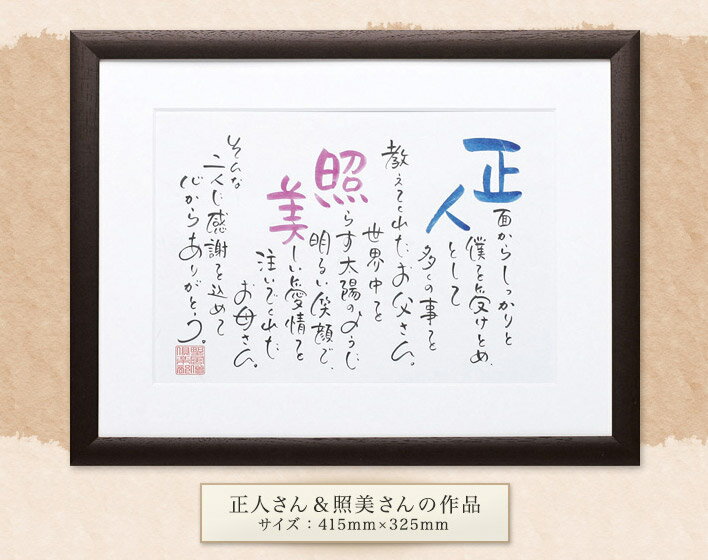 正面からしっかりと
僕を受けとめ、
人として
多くの事を
教えてくれたお父さん。
世界中を
照らす太陽のように
明るい笑顔で、
美しい愛情を
注いでくれた
お母さん。
そんな
二人に感謝を込めて
心からありがとう。
正人さん＆照美さんの作品
サイズ：415mm×325mm